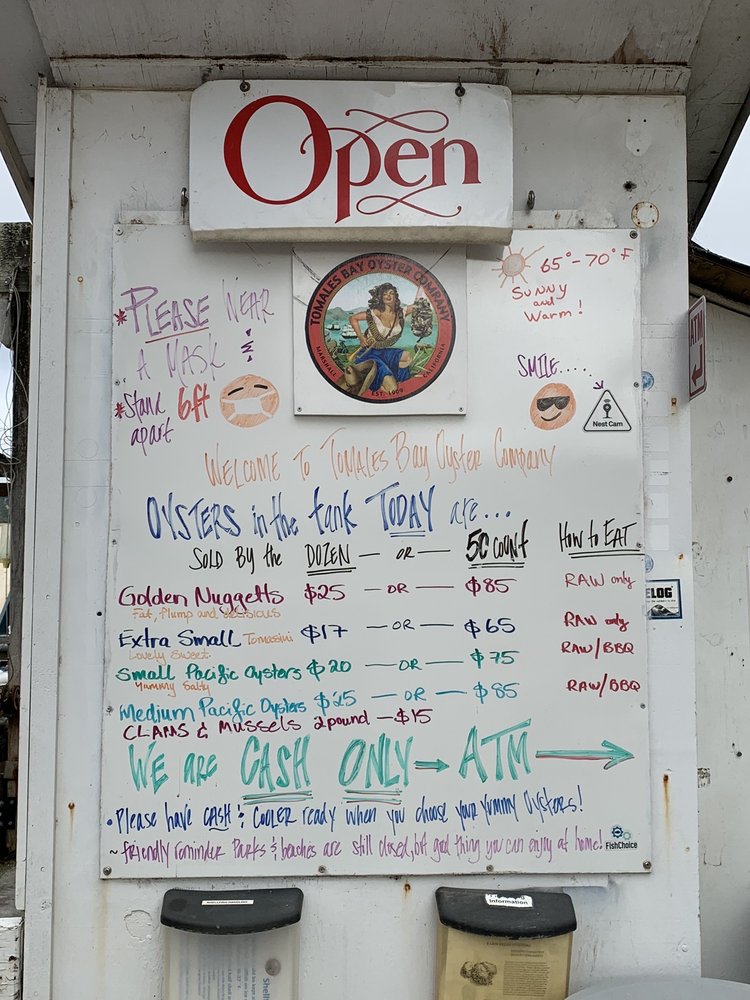 Open
TOMALES BAY OYSTER COMPANY
MARSHALL CALIFORNIA
EST. 1909
* PLEASE WEAR
A MASK &
* Stand 6ft
apart
65°-70°F
SUNNY
and
Warm!
SMILE.....
Nest Cam
ATM
WELCOME TO TOMALES BAY OYSTER COMPANY
OYSTERS in the tank TODAY are...
SOLD BY the DOZEN — OR — 50 COUNT How to EAT
Golden Nuggetts $25 — OR — $85 RAW only
Fat, Plump and DELISIOUS
Extra Small Tomasini $17 — OR — $65 RAW only
Lovely Sweet
Small Pacific Oysters $20 — OR — $75 RAW/BBQ
Yummy Salty
Medium Pacific Oysters $25 — OR — $85 RAW/BBQ
CLAMS & MUSSELS 2 pound — $15
WE ARE CASH ONLY → ATM →
• Please have CASH & COOLER ready when you choose your Yummy Oysters!
~ friendly reminder Parks & beaches are still closed, but good thing you can enjoy at home!
FishChoice
ELOG
Information